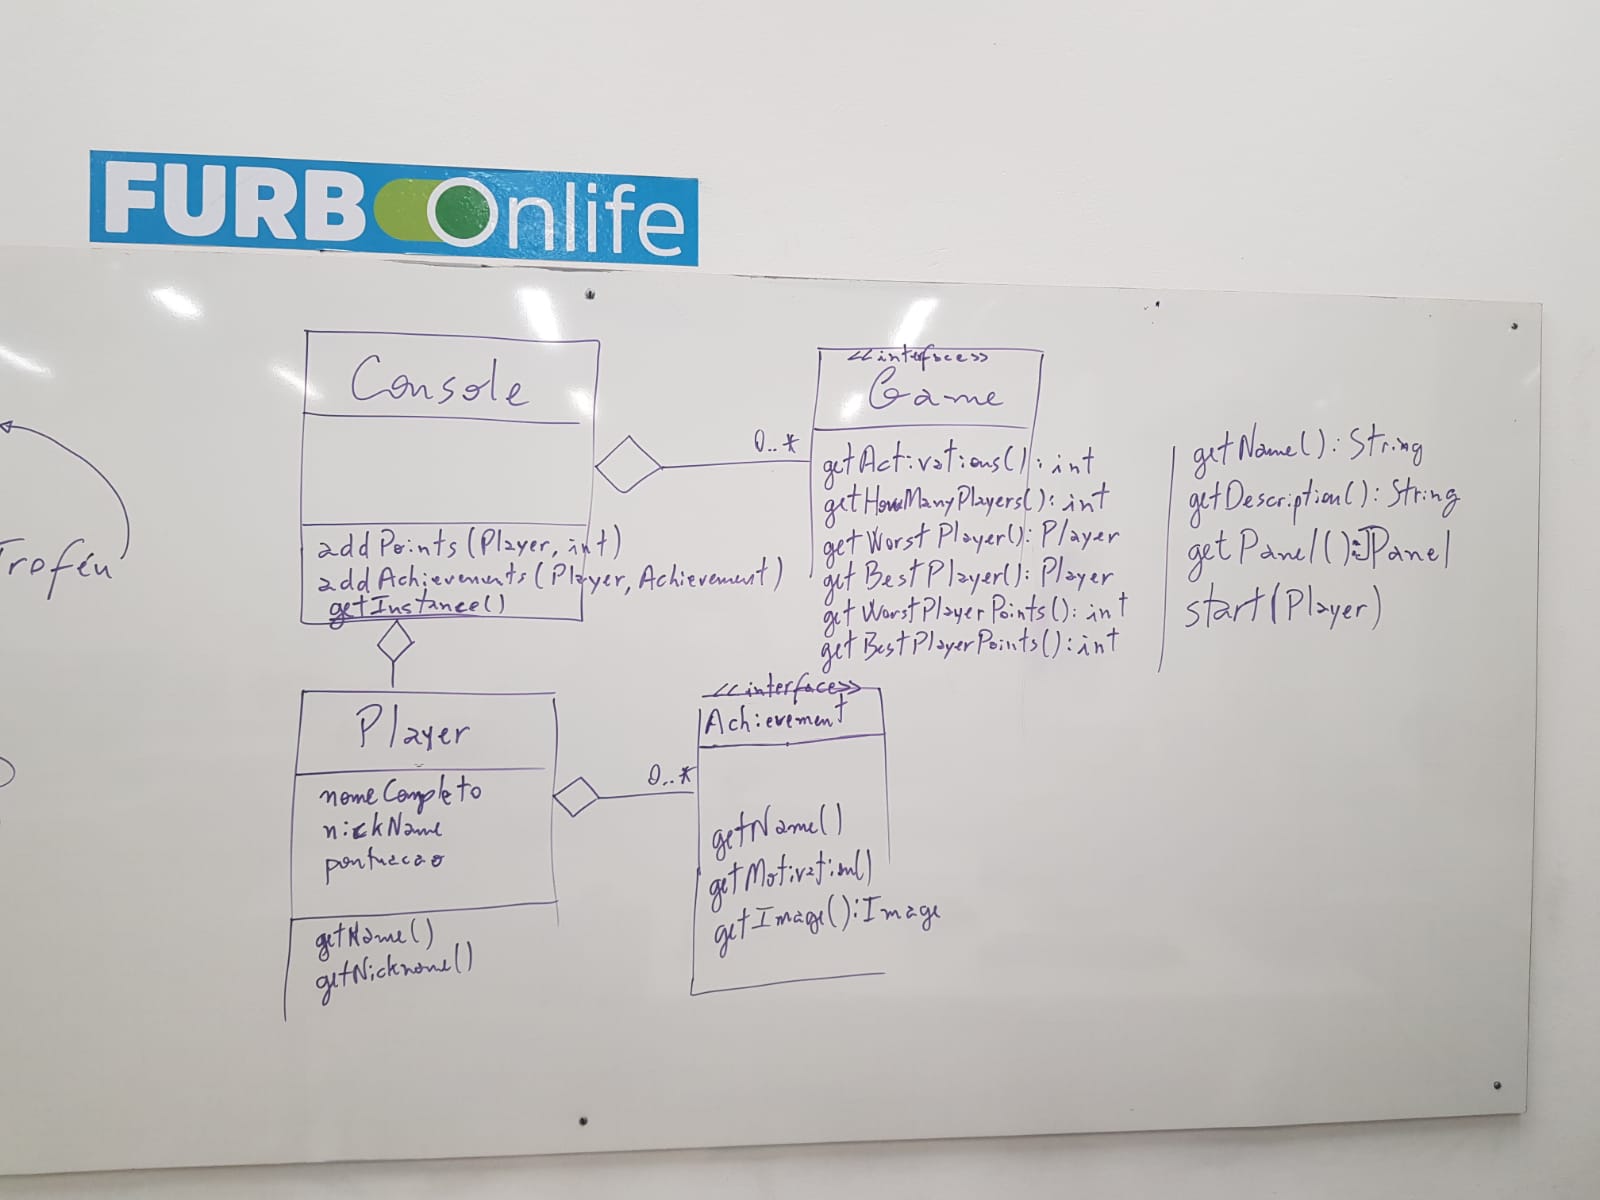 FURB Onlife
Console
addPoints(Player, int)
addAchievements(Player, Achievement)
getInstance()
0..*
<<interface>>
Game
getActivations(): int
getHowManyPlayers(): int
getWorstPlayer(): Player
getBestPlayer(): Player
getWorstPlayerPoints(): int
getBestPlayerPoints(): int
getName(): String
getDescription(): String
getPanel(): JPanel
start(Player)
Troféu
Player
nomeCompleto
nickName
pontuacao
getName()
getNickname()
0..*
<<interface>>
Achievement
getName()
getMotivation()
getImage(): Image